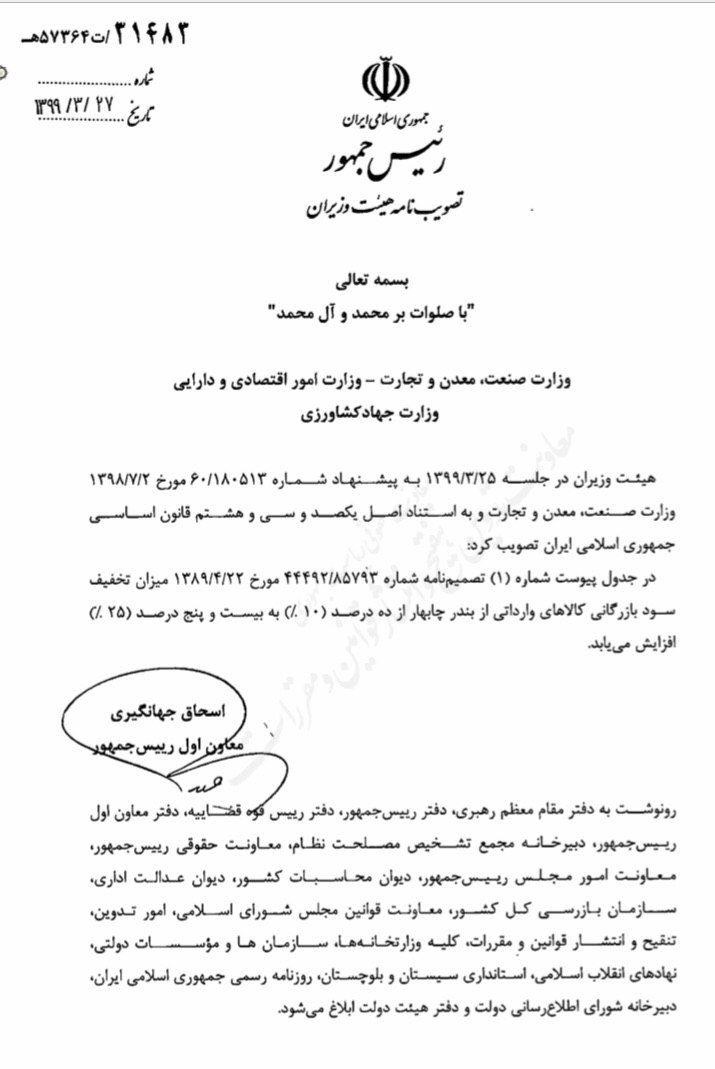 ۳۱۴۸۳/ت۵۷۳۶۴هـ
شماره
تاریخ ۱۳۹۹/۳/۲۷
جمهوری اسلامی ایران
رئیس جمهور
تصویب نامه هیئت وزیران
بسمه تعالی
"با صلوات بر محمد و آل محمد"
وزارت صنعت، معدن و تجارت – وزارت امور اقتصادی و دارایی
وزارت جهادکشاورزی
هیئت وزیران در جلسه ۱۳۹۹/۳/۲۵ به پیشنهاد شماره ۶۰/۱۸۰۵۱۳ مورخ ۱۳۹۸/۷/۲
وزارت صنعت، معدن و تجارت و به استناد اصل یکصد و سی و هشتم قانون اساسی
جمهوری اسلامی ایران تصویب کرد:
در جدول پیوست شماره (۱) تصمیم‌نامه شماره ۴۴۴۹۲/۸۵۷۹۳ مورخ ۱۳۸۹/۴/۲۲ میزان تخفیف
سود بازرگانی کالاهای وارداتی از بندر چابهار از ده درصد (۱۰ ٪) به بیست و پنج درصد (۲۵ ٪)
افزایش می‌یابد.
اسحاق جهانگیری
معاون اول رییس‌جمهور
رونوشت به دفتر مقام معظم رهبری، دفتر رییس‌جمهور، دفتر رییس قوه قضاییه، دفتر معاون اول
رییس‌جمهور، دبیرخانه مجمع تشخیص مصلحت نظام، معاونت حقوقی رییس‌جمهور،
معاونت امور مجلس رییس‌جمهور، دیوان محاسبات کشور، دیوان عدالت اداری،
سازمان بازرسی کل کشور، معاونت قوانین مجلس شورای اسلامی، امور تدوین،
تنقیح و انتشار قوانین و مقررات، کلیه وزارتخانه‌ها، سازمان ها و مؤسسات دولتی،
نهادهای انقلاب اسلامی، استانداری سیستان و بلوچستان، روزنامه رسمی جمهوری اسلامی ایران،
دبیرخانه شورای اطلاع‌رسانی دولت و دفتر هیئت دولت ابلاغ می‌شود.